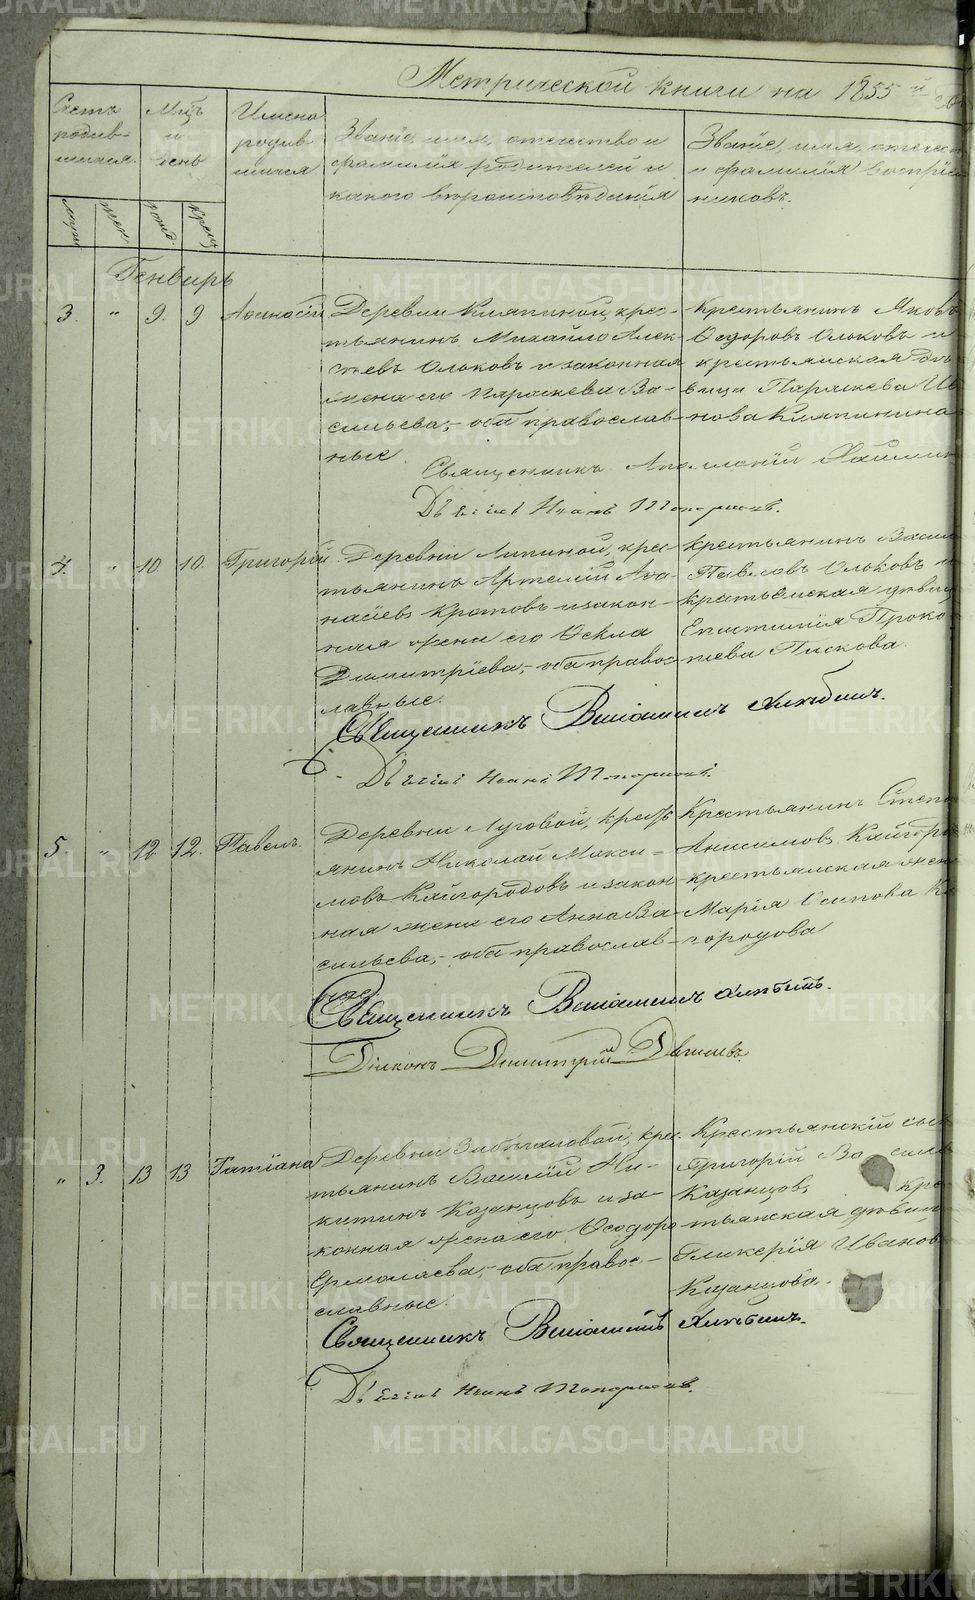 Метрической книги на 1855й
Счетъ родив-шихся.
Мцъ и день
Имена родив-шихся
Званіе, имя, отечество и
фамилія родителей и
какого вѣроисповѣданія
Званіе, имя, отечест
и фамилія воспріем
никовъ.
муж. жен. рожд. крещ.
Генварь
3. " 9. 9 Аѳанасій
Деревни Кляпиной, крес-
тьянинъ Михайло Алек-
ѣевъ Ольковъ и законная
жена его Параскева Ва-
сильева, оба православ-
ные.
Крестьянинъ Яковъ
Ѳедоровъ Ольковъ и
крестьянская дѣ
вица Параскева Ив
нова Кляпинина
Священникъ
Дьячекъ Иванъ Топорковъ.
4. " 10. 10. Григорій.
Деревни Липиной, крес-
тьянинъ Артемій Аѳа-
насіевъ Кротовъ и закон-
ная жена его Ѳекла
Димитріева, оба правос-
лавные.
Крестьянинъ Васил
Павловъ Ольковъ и
крестьянская дѣвиц
Епистимія Проко
піева Пискова.
Священникъ Веніаминъ Хлѣбинъ.
Дьячекъ Иванъ Топорковъ.
5 " 12. 12. Павелъ.
Деревни Луговой, крестъ
янинъ Николай Макси-
мовъ Кайгородовъ и закон-
ная жена его Анна Ва-
сильева, оба православ-
ные.
Крестьянинъ Степа
Анисимовъ Кайгоро
крестьянская жена
Марія Осипова Ка
городова
Священникъ Веніаминъ Хлѣбинъ.
Діаконъ Димитрій
" 3. 13 13 Татіана
Деревни Забѣгаловой, крес
тьянинъ Василій Ни-
китинъ Казанцовъ и за-
конная жена его Ѳеодора
Ермолаева, оба право-
славные.
Крестьянскій сынъ
Григорій Васильев
Казанцовъ, крес
тьянская дѣвиц
Гликерія Иванов
Казанцова.
Священникъ Веніаминъ Хлѣбинъ.
Дьячекъ Иванъ Топорковъ.
METRIKI.GASO-URAL.RU